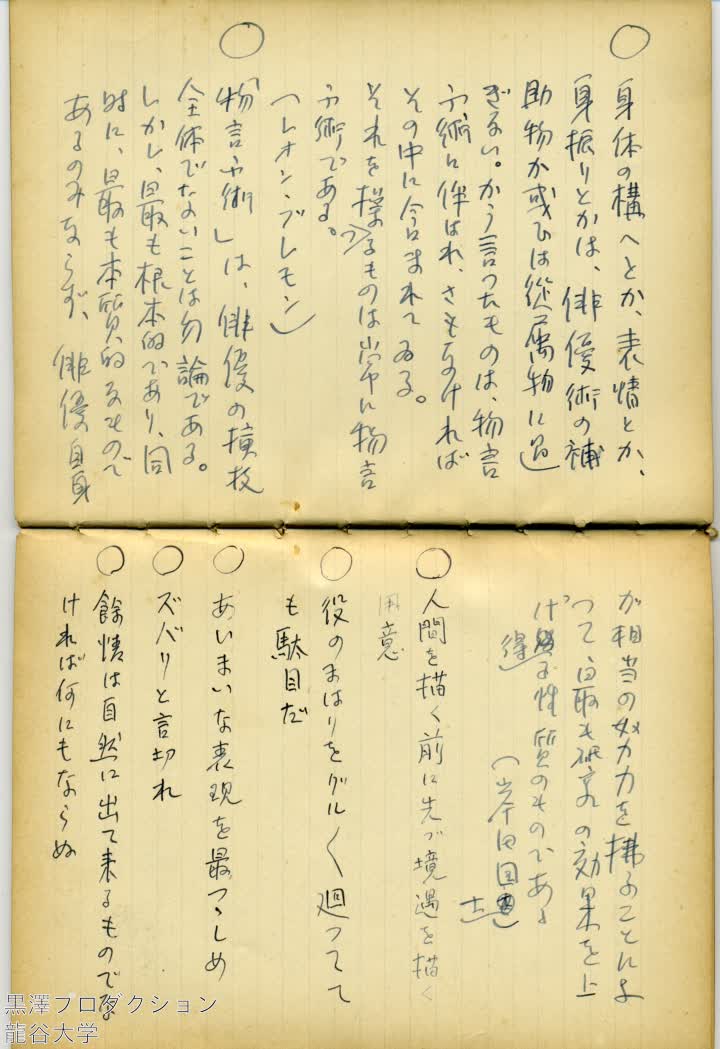 ○
身体の構へとか、表情とか、
身振りとかは、俳優術の補
助物か或ひは從属物に過
ぎない。かう言つたものは、物言
ふ術に伴はれ、さもなければ
その中に含まれてゐる。
それを操るものは常に物言
ふ術である。
（レオン・ブレモン）
○
「物言ふ術」は、俳優の演技
全体でないことは勿論である。
しかし、最も根本的であり、同
時に、最も本質的なもので
あるのみならず、俳優自身
が相当の努力を拂ふことによ
つて、最も確実の効果を上
げ得る性質のものである
（岸田国士）
○
人間を描く前に先づ境遇を描く
用意
○
役のまはりをグル〱廻つてて
も駄目だ
○
あいまいな表現を最つゝしめ
○
ズバリと言切れ
○
餘情は自然に出て来るもので無
ければ何にもならぬ
黒澤プロダクション
龍谷大学